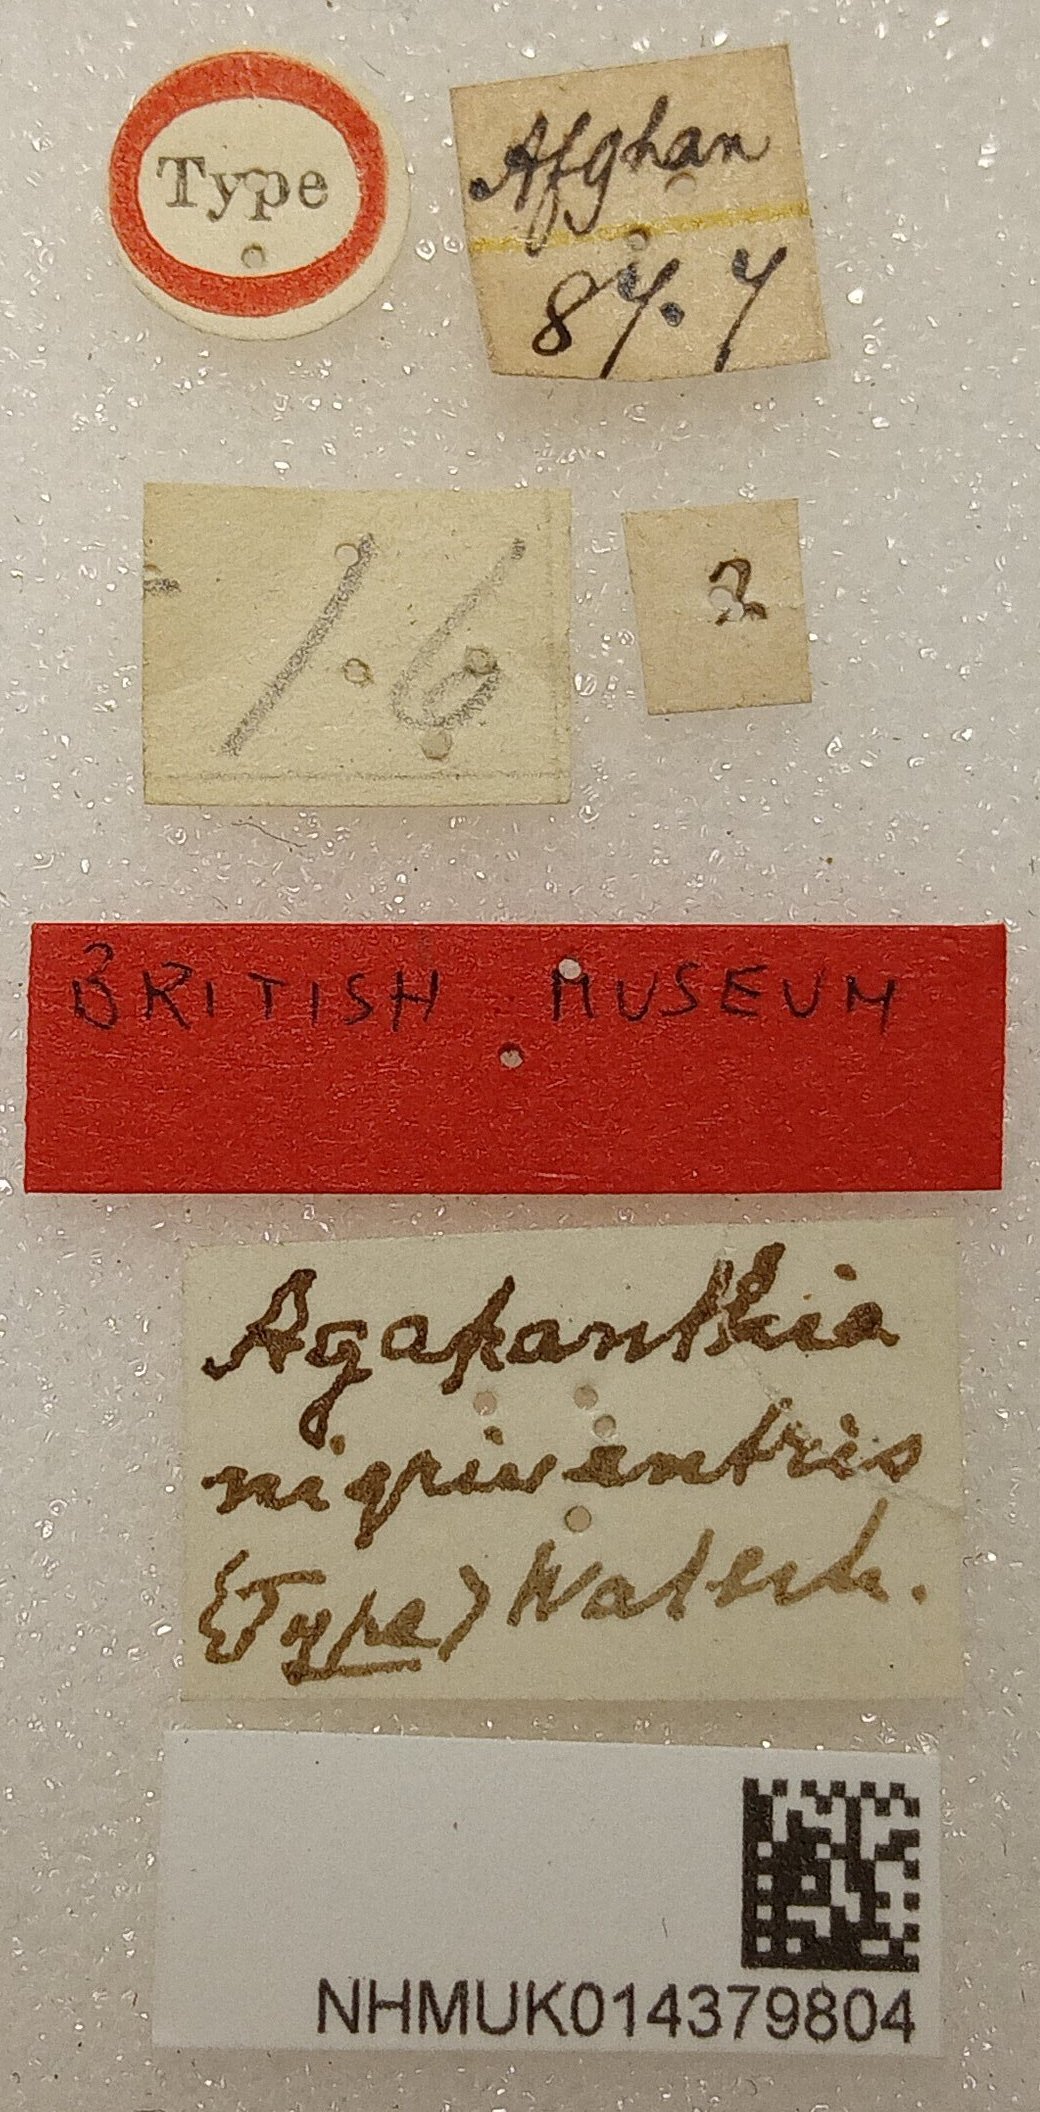 Type
Afghan
87.7
16
3
BRITISH MUSEUM
Agapanthia
nigriventris
(Type) Waterh.
NHMUK014379804